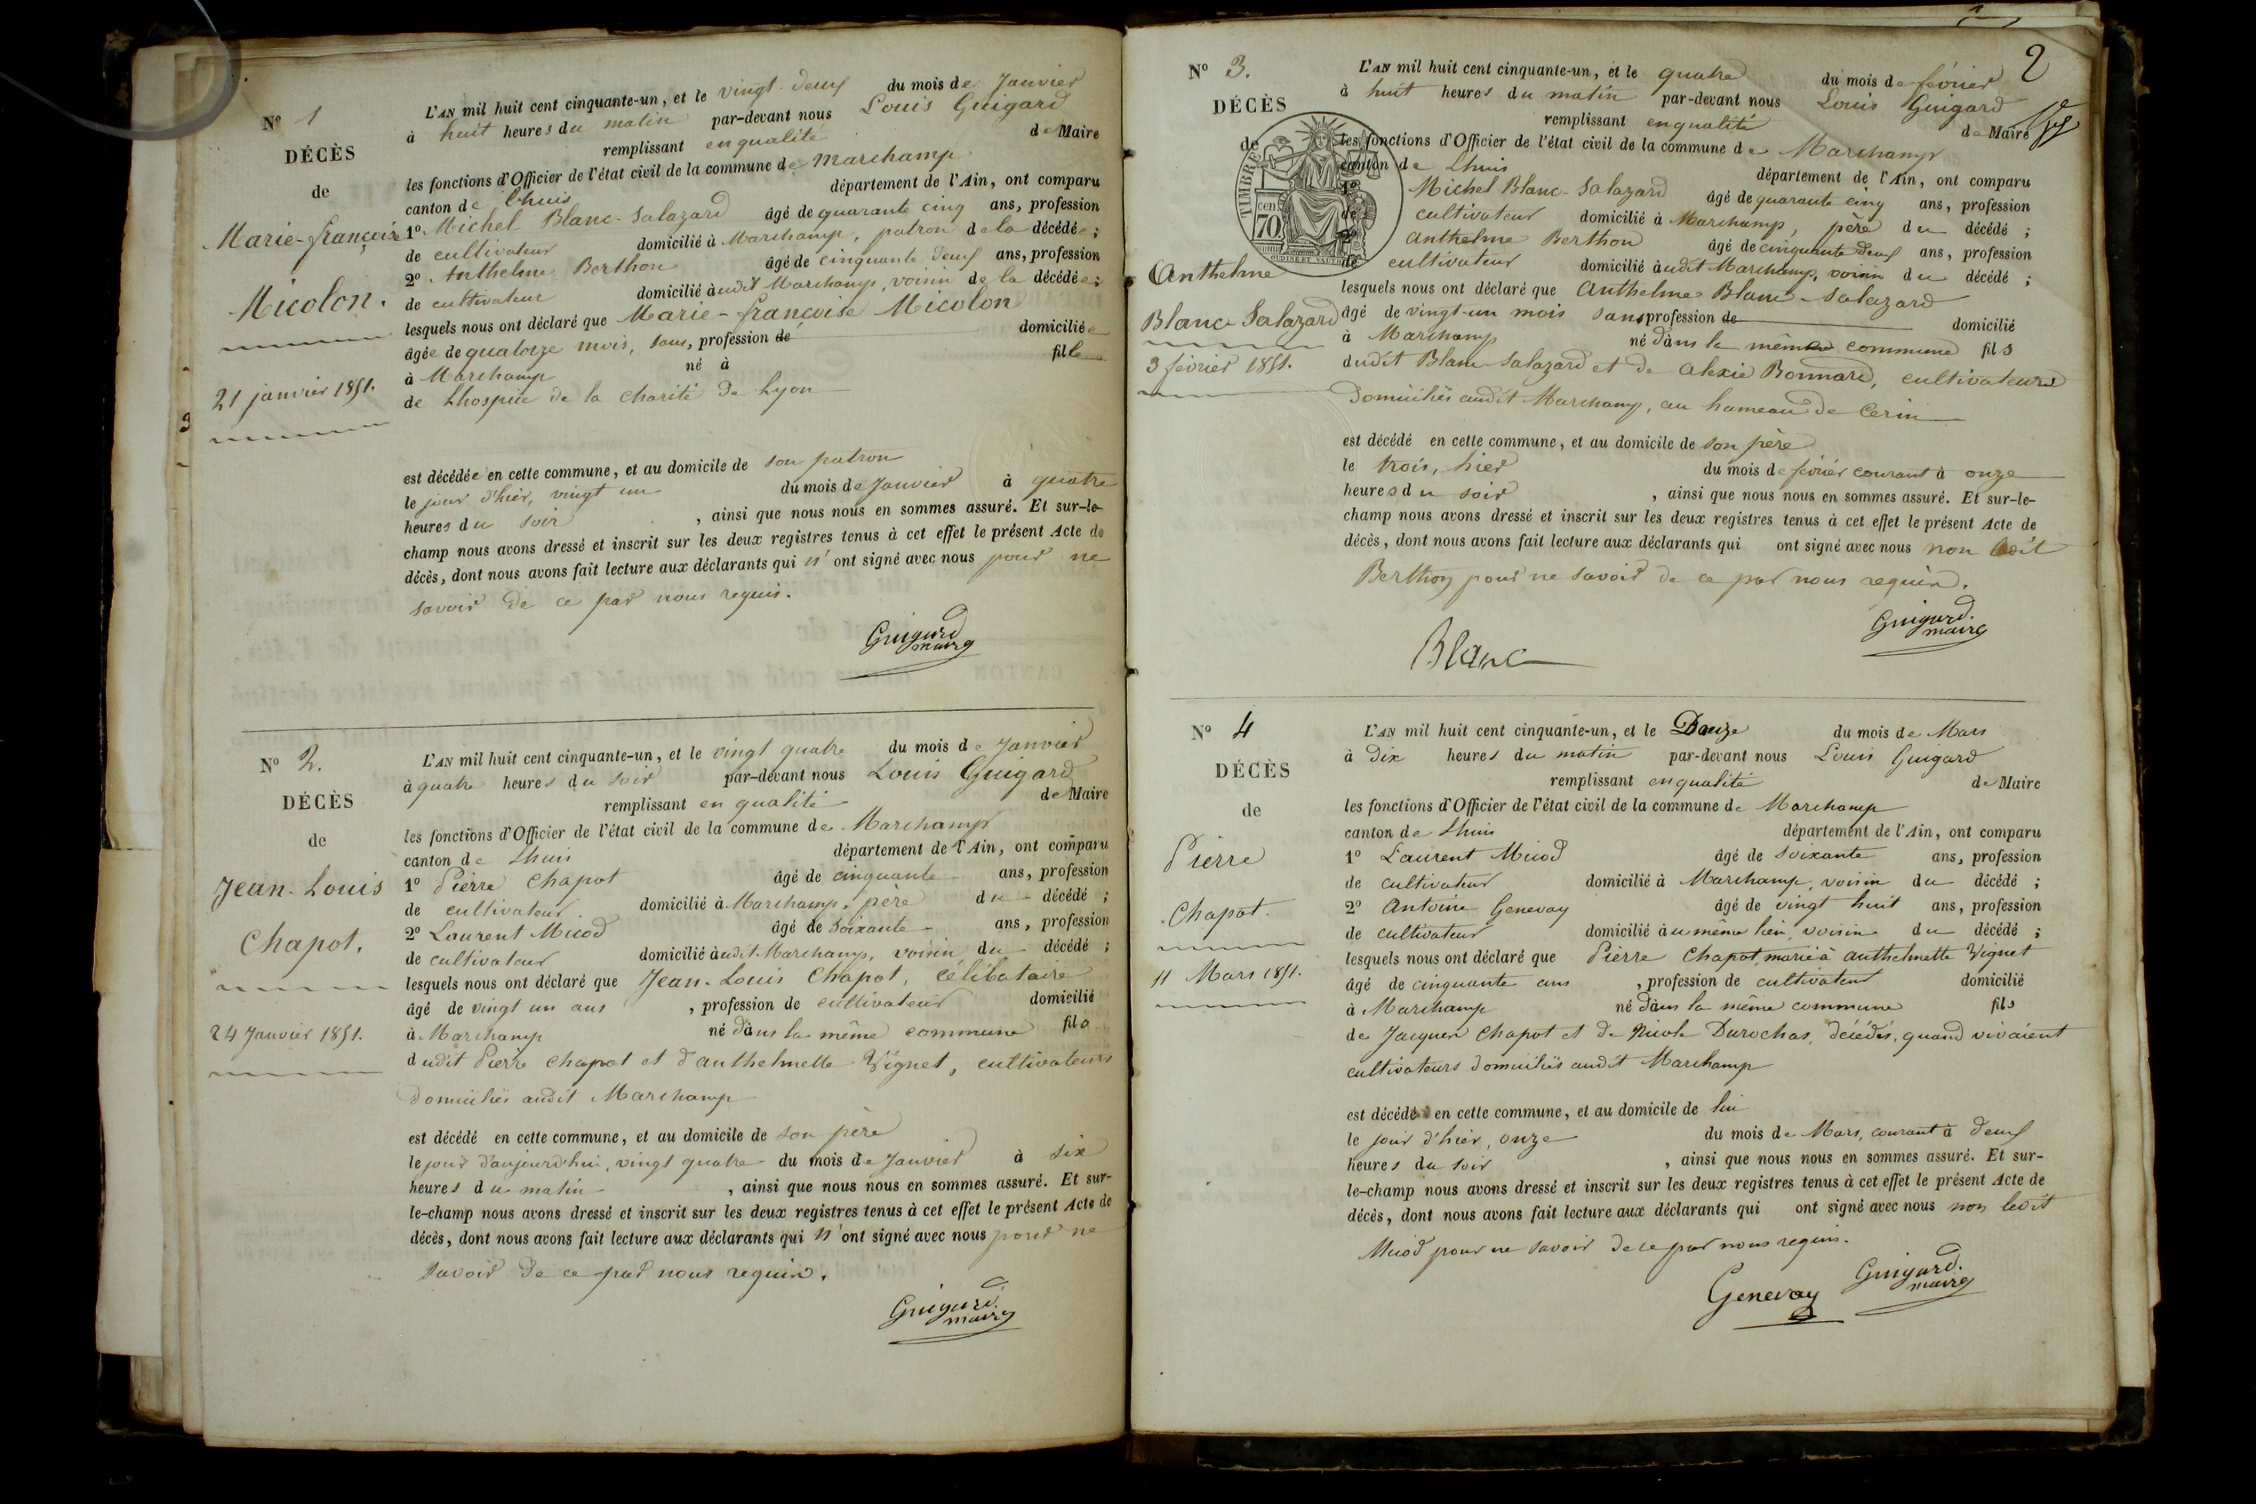 N° 1
DÉCÈS
de
Marie-françoise
Micolon.
21 janvier 1851.
L'AN mil huit cent cinquante-un, et le vingt-deux du mois de Janvier
à huit heures du matin par-devant nous Louis Guigard
remplissant en qualité de Maire
les fonctions d'Officier de l'état civil de la commune de Marchamp
canton de Lhuis département de l'Ain, ont comparu
1° Michel Blanc-Salazard âgé de quarante cinq ans, profession
de cultivateur domicilié à Marchamp, patron de la décédée ;
2° Anthelme Berthon âgé de cinquante deux ans, profession
de cultivateur domicilié audit Marchamp, voisin de la décédée ;
lesquels nous ont déclaré que Marie-françoise Micolon
âgée de quatorze mois, sans, profession de domiciliée
à Marchamp né à fille
de Lhospice de la charité de Lyon
est décédée en cette commune, et au domicile de son patron
le jour d'hier, vingt un du mois de Janvier à quatre
heures du soir, ainsi que nous nous en sommes assuré. Et sur-le-
champ nous avons dressé et inscrit sur les deux registres tenus à cet effet le présent Acte de
décès, dont nous avons fait lecture aux déclarants qui n'ont signé avec nous pour ne
savoir de ce par nous requis.
Guigard
maire
N° 2.
DÉCÈS
de
Jean-Louis
Chapot.
24 Janvier 1851.
L'AN mil huit cent cinquante-un, et le vingt quatre du mois de Janvier
à quatre heures du soir par-devant nous Louis Guigard
remplissant en qualité de Maire
les fonctions d'Officier de l'état civil de la commune de Marchamp
canton de Lhuis département de l'Ain, ont comparu
1° Pierre Chapot âgé de cinquante ans, profession
de cultivateur domicilié à Marchamp, père du décédé ;
2° Laurent Micod âgé de soixante ans, profession
de cultivateur domicilié audit Marchamp, voisin du décédé ;
lesquels nous ont déclaré que Jean-Louis Chapot, célibataire
âgé de vingt un ans, profession de cultivateur domicilié
à Marchamp né dans la même commune fils
dudit Pierre Chapot et d'anthelmette Vignet, cultivateurs
domiciliés audit Marchamp
est décédé en cette commune, et au domicile de son père
le jour d'aujourd'hui, vingt quatre du mois de Janvier à six
heures du matin, ainsi que nous nous en sommes assuré. Et sur-
le-champ nous avons dressé et inscrit sur les deux registres tenus à cet effet le présent Acte de
décès, dont nous avons fait lecture aux déclarants qui n'ont signé avec nous pour ne
savoir de ce par nous requis.
Guigard.
maire
2
N° 3.
DÉCÈS
de
TIMBRE
70
cen
Anthelme
Blanc Salazard
3 février 1851.
L'AN mil huit cent cinquante-un, et le quatre du mois de février
à huit heures du matin par-devant nous Louis Guigard
remplissant en qualité de Maire
les fonctions d'Officier de l'état civil de la commune de Marchamp
canton de Lhuis département de l'Ain, ont comparu
1° Michel Blanc-Salazard âgé de quarante cinq ans, profession
de cultivateur domicilié à Marchamp, père du décédé ;
2° Anthelme Berthon âgé de cinquante deux ans, profession
de cultivateur domicilié audit Marchamp, voisin du décédé ;
lesquels nous ont déclaré que Anthelme Blanc-Salazard
âgé de vingt-un mois sans profession de domicilié
à Marchamp né dans la même commune fils
dudit Blanc-Salazard et de Alexie Bonnard, cultivateurs
domiciliés audit Marchamp, au hameau de Cerin
est décédé en cette commune, et au domicile de son père
le trois, hier du mois de février courant à onze
heures du soir, ainsi que nous nous en sommes assuré. Et sur-le-
champ nous avons dressé et inscrit sur les deux registres tenus à cet effet le présent Acte de
décès, dont nous avons fait lecture aux déclarants qui ont signé avec nous non ledit
Berthon pour ne savoir de ce par nous requis.
Guigard.
maire
Blanc
N° 4
DÉCÈS
de
Pierre
Chapot.
11 Mars 1851.
L'AN mil huit cent cinquante-un, et le Douze du mois de Mars
à dix heures du matin par-devant nous Louis Guigard
remplissant en qualité de Maire
les fonctions d'Officier de l'état civil de la commune de Marchamp
canton de Lhuis département de l'Ain, ont comparu
1° Laurent Micod âgé de soixante ans, profession
de cultivateur domicilié à Marchamp, voisin du décédé ;
2° Antoine Genevay âgé de vingt huit ans, profession
de cultivateur domicilié au même lieu, voisin du décédé ;
lesquels nous ont déclaré que Pierre Chapot, marié à anthelmette Vignet
âgé de cinquante ans, profession de cultivateur domicilié
à Marchamp né dans la même commune fils
de Jacques Chapot et de Nicole Durochas, décédés, quand vivaient
cultivateurs domiciliés audit Marchamp
est décédé en cette commune, et au domicile de lui
le jour d'hier, onze du mois de Mars, courant à deux
heures du soir, ainsi que nous nous en sommes assuré. Et sur-
le-champ nous avons dressé et inscrit sur les deux registres tenus à cet effet le présent Acte de
décès, dont nous avons fait lecture aux déclarants qui ont signé avec nous non ledit
Micod pour ne savoir de ce par nous requis.
Guigard.
maire
Genevay